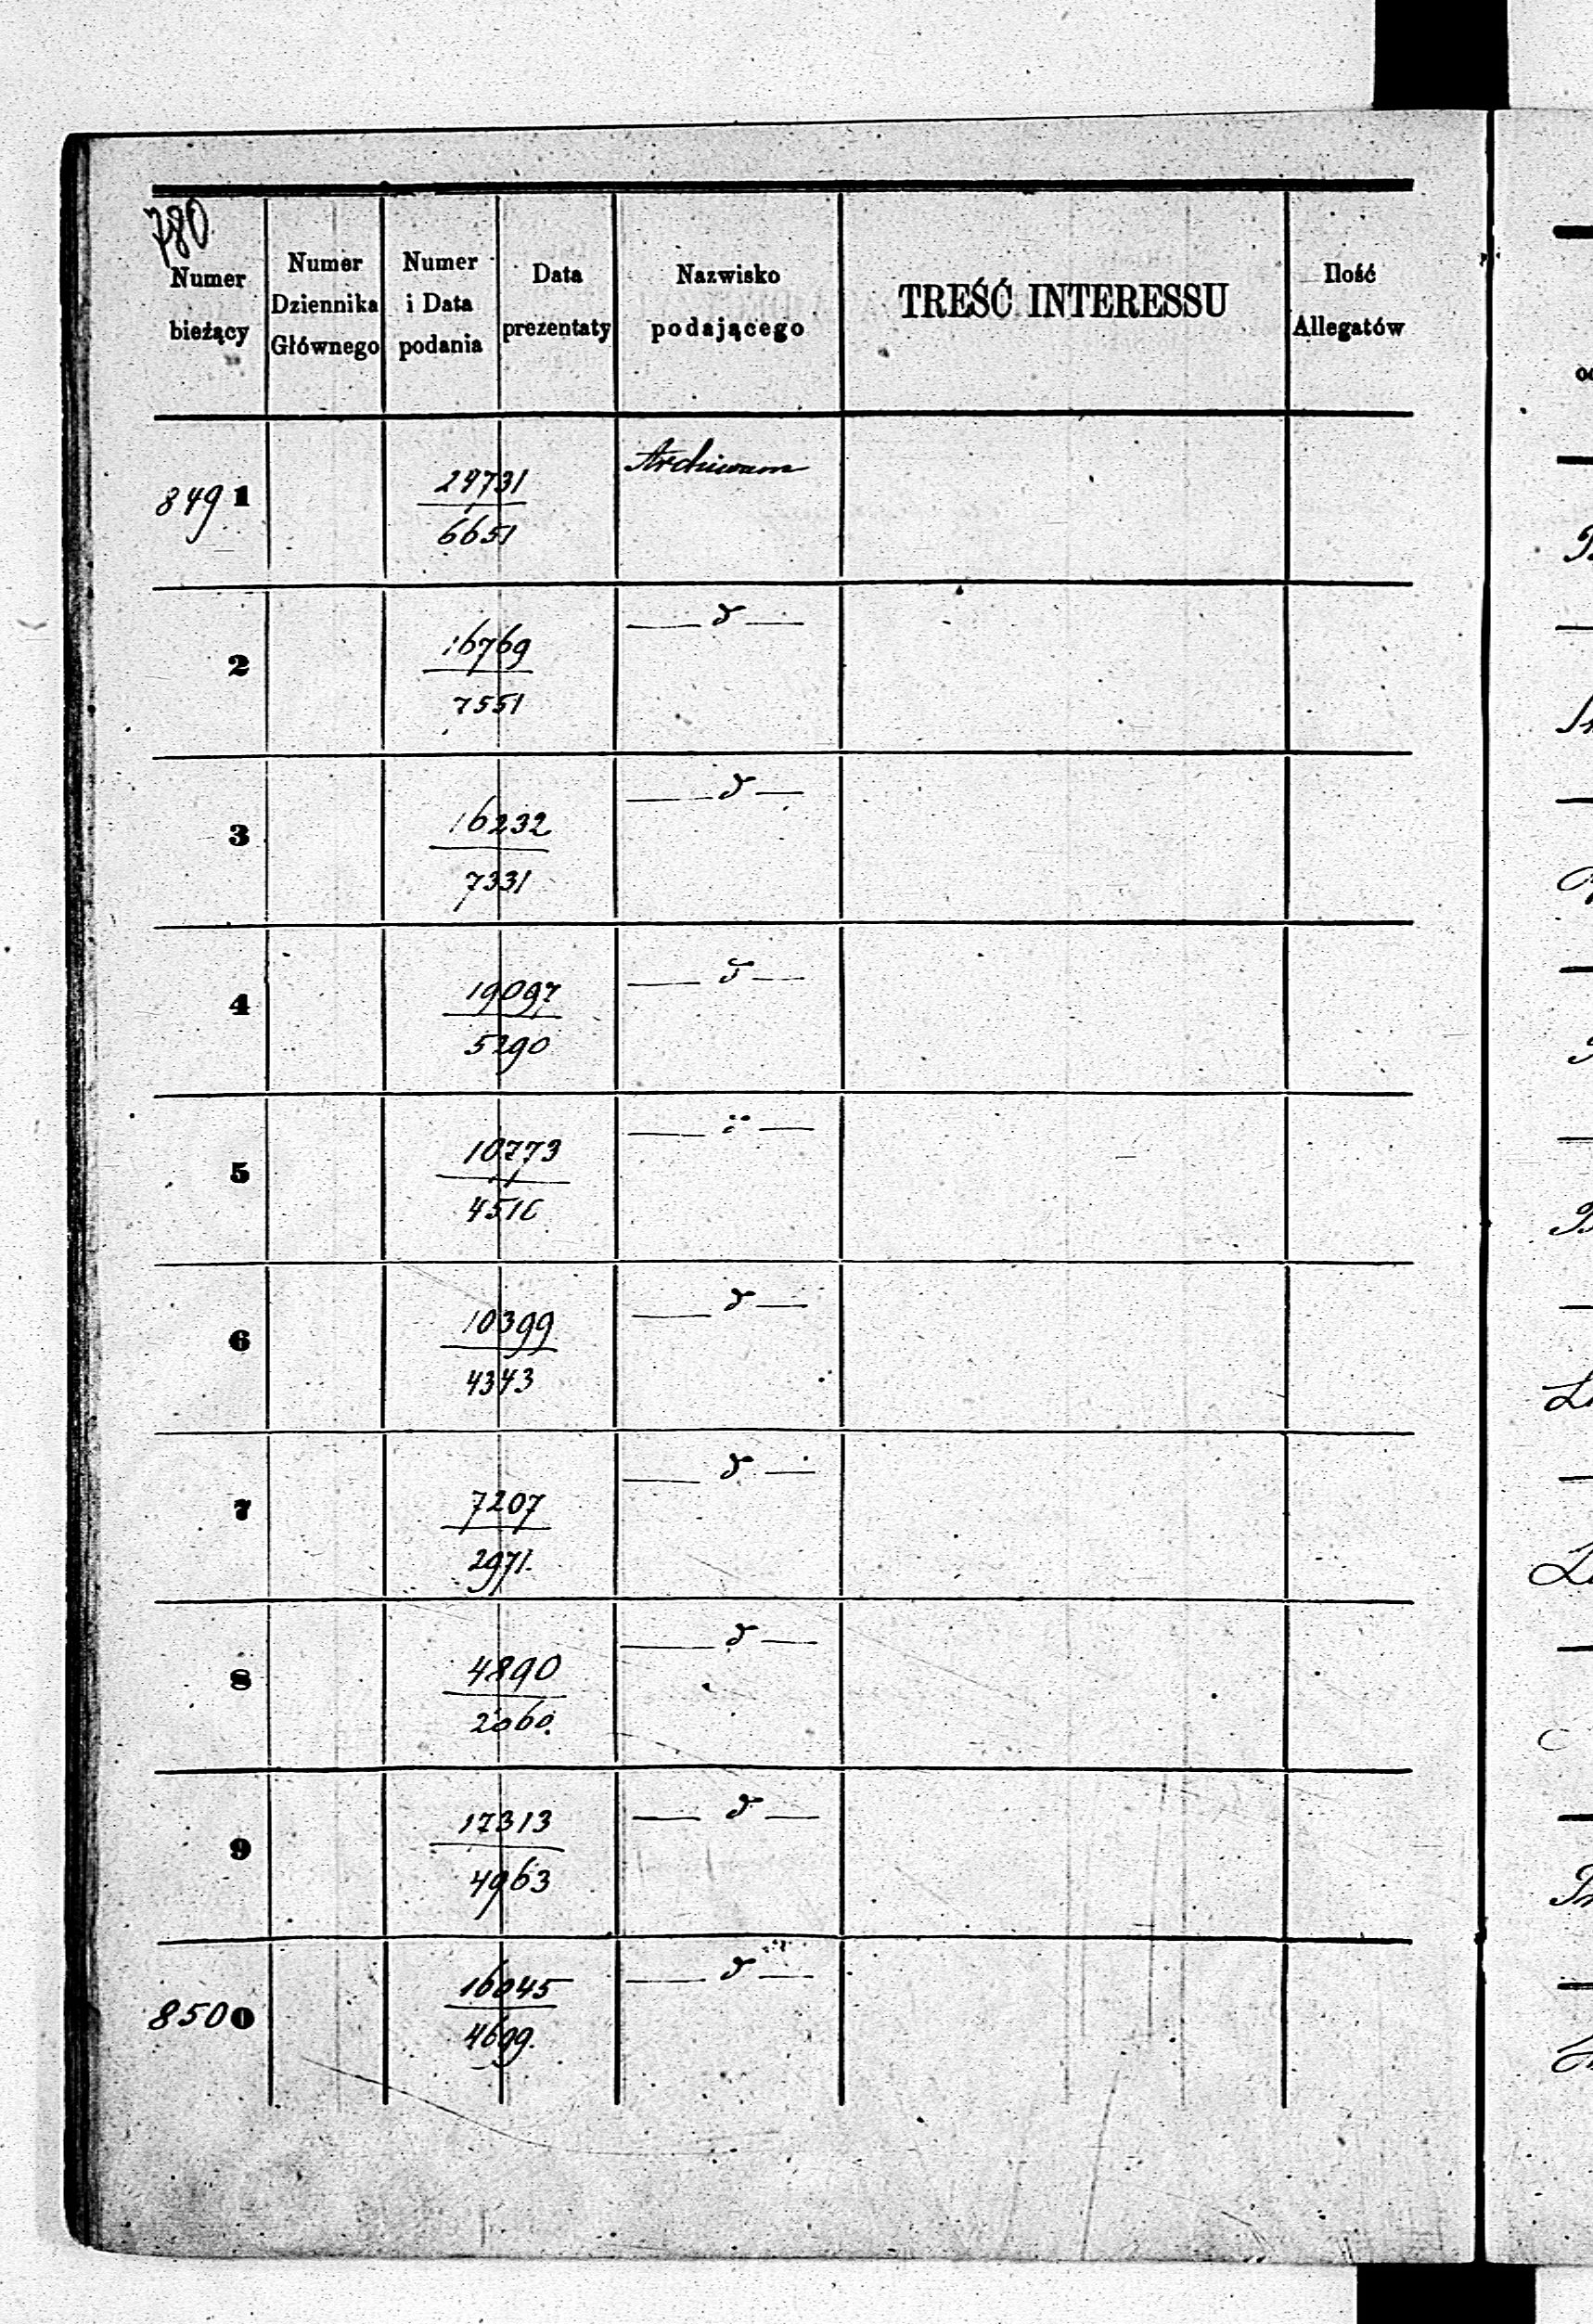 780
Numer bieżący | Numer Dziennika Głównego | Numer i Data podania | Data prezentaty | Nazwisko podającego | TREŚĆ INTERESSU | Ilość Allegatów
8491 | 24731 / 6651 | Archiwum
2 | 16769 / 7551 | — d —
3 | 16232 / 7331 | — d —
4 | 19097 / 5290 | — d —
5 | 10773 / 4516
6 | 10399 / 4343 | — d —
7 | 7207 / 2971 | — d —
8 | 4890 / 2060 | — d —
9 | 17313 / 4963 | — d —
8500 | 16045 / 4699 | — d —